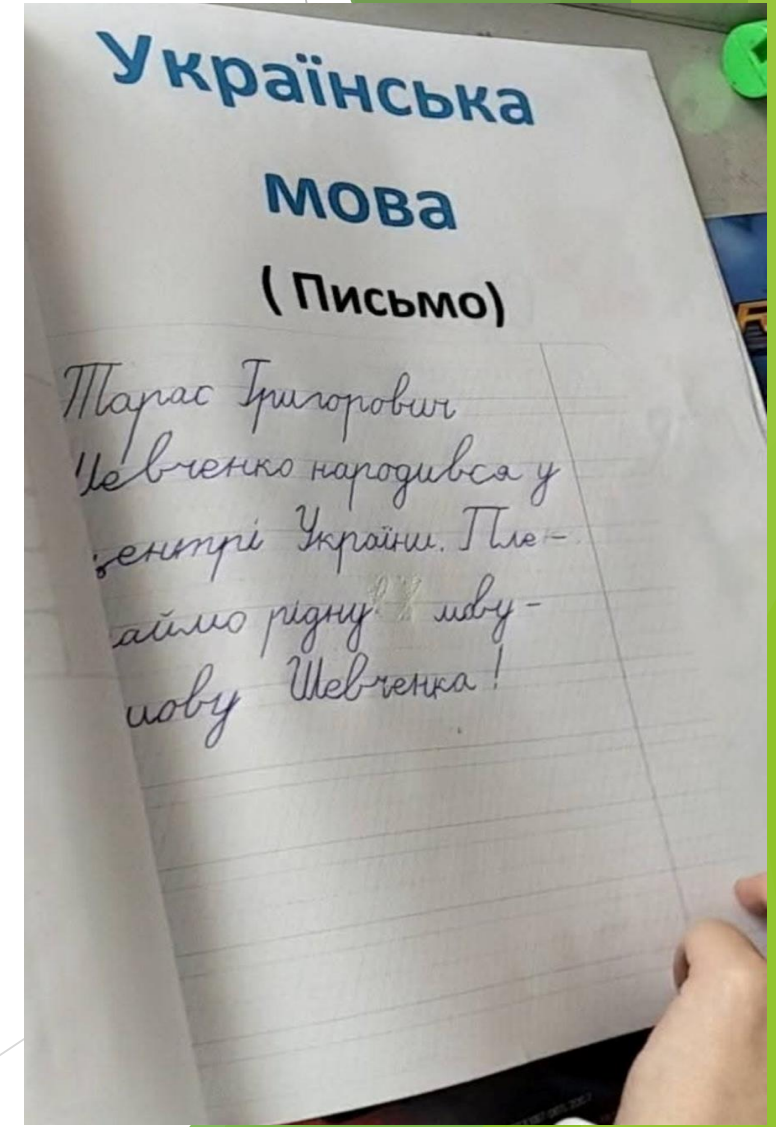 Українська
мова
( Письмо)
Тарас Григорович
Шевченко народився у
центрі України. Пле-
каймо рідну мову -
мову Шевченка!